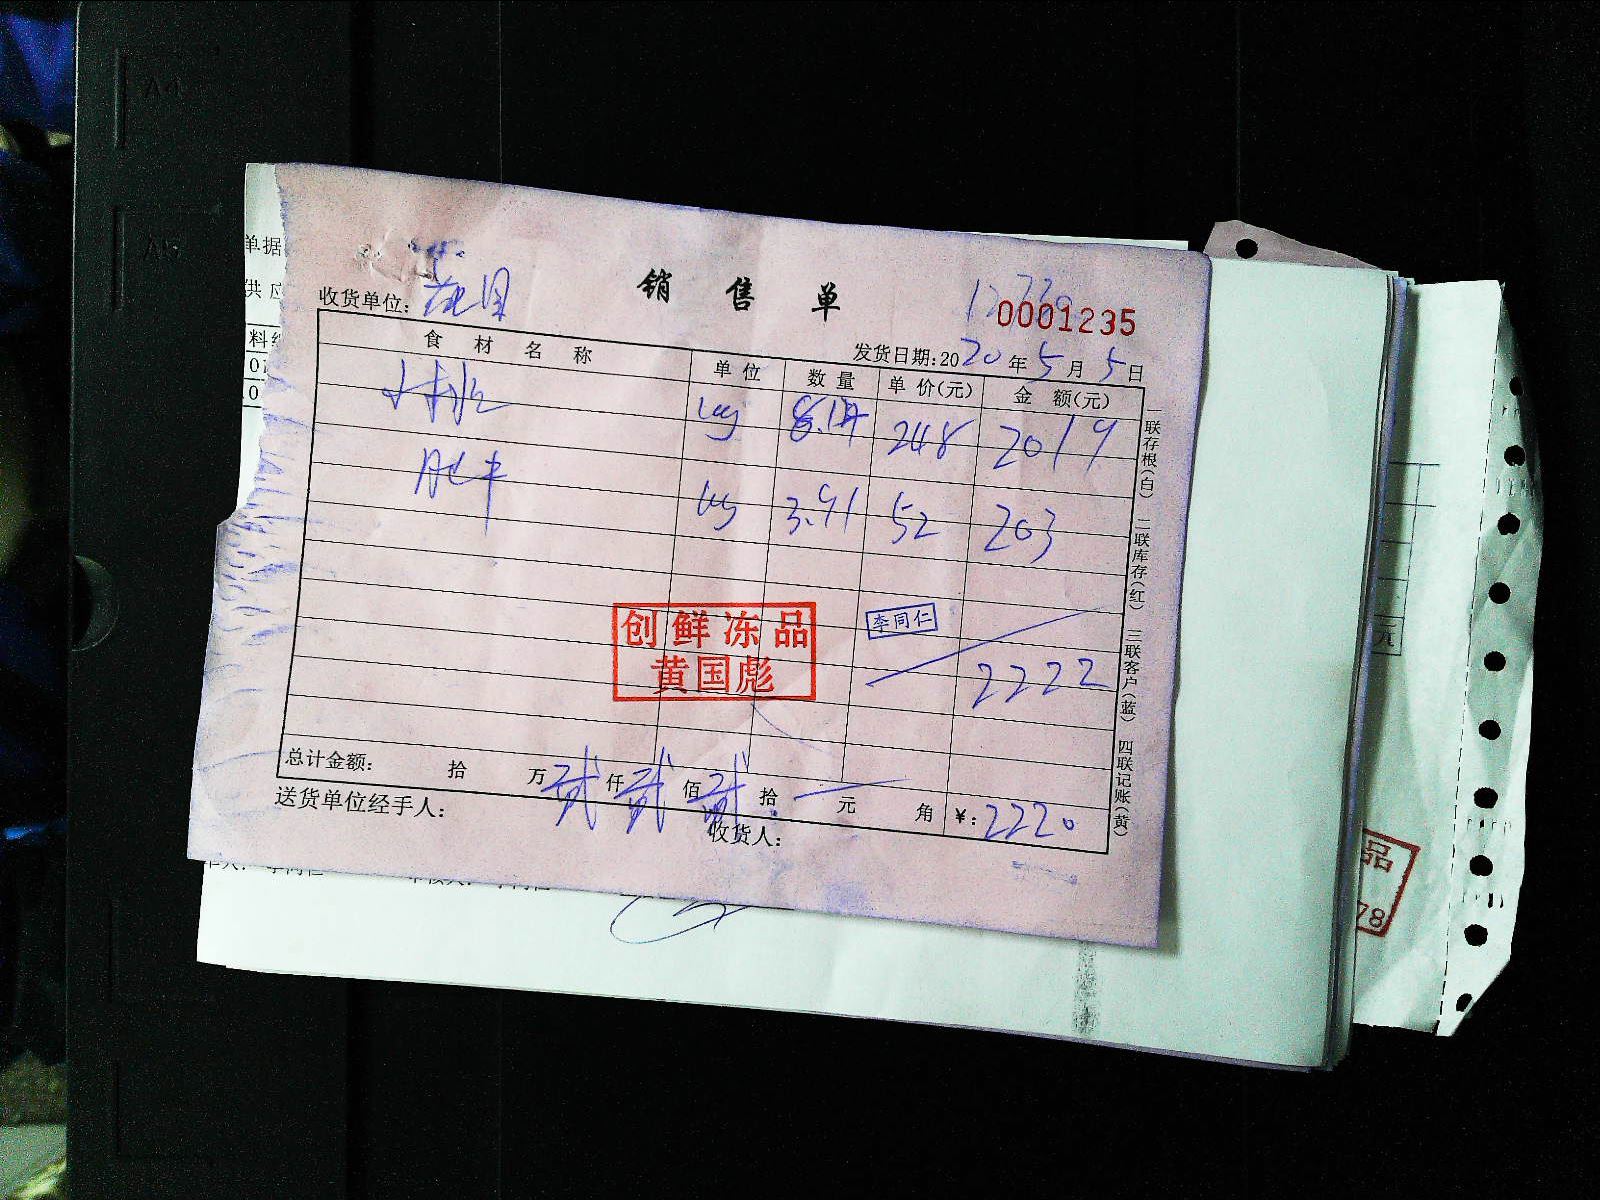 销售单
0001235
收货单位：
发货日期:2020年5月5日
食材名称 单位 数量 单价(元) 金额(元)
小排 kg 8.14 248 2019
肥牛 kg 3.91 52 203
李同仁
创鲜冻品
黄国彪
2222
总计金额： 拾 万 贰 仟 贰 佰 贰 拾 元 角 ¥：2220
送货单位经手人：
收货人：
一联存根(白) 二联库存(红) 三联客户(蓝) 四联记账(黄)
单据
供应
品
78
元